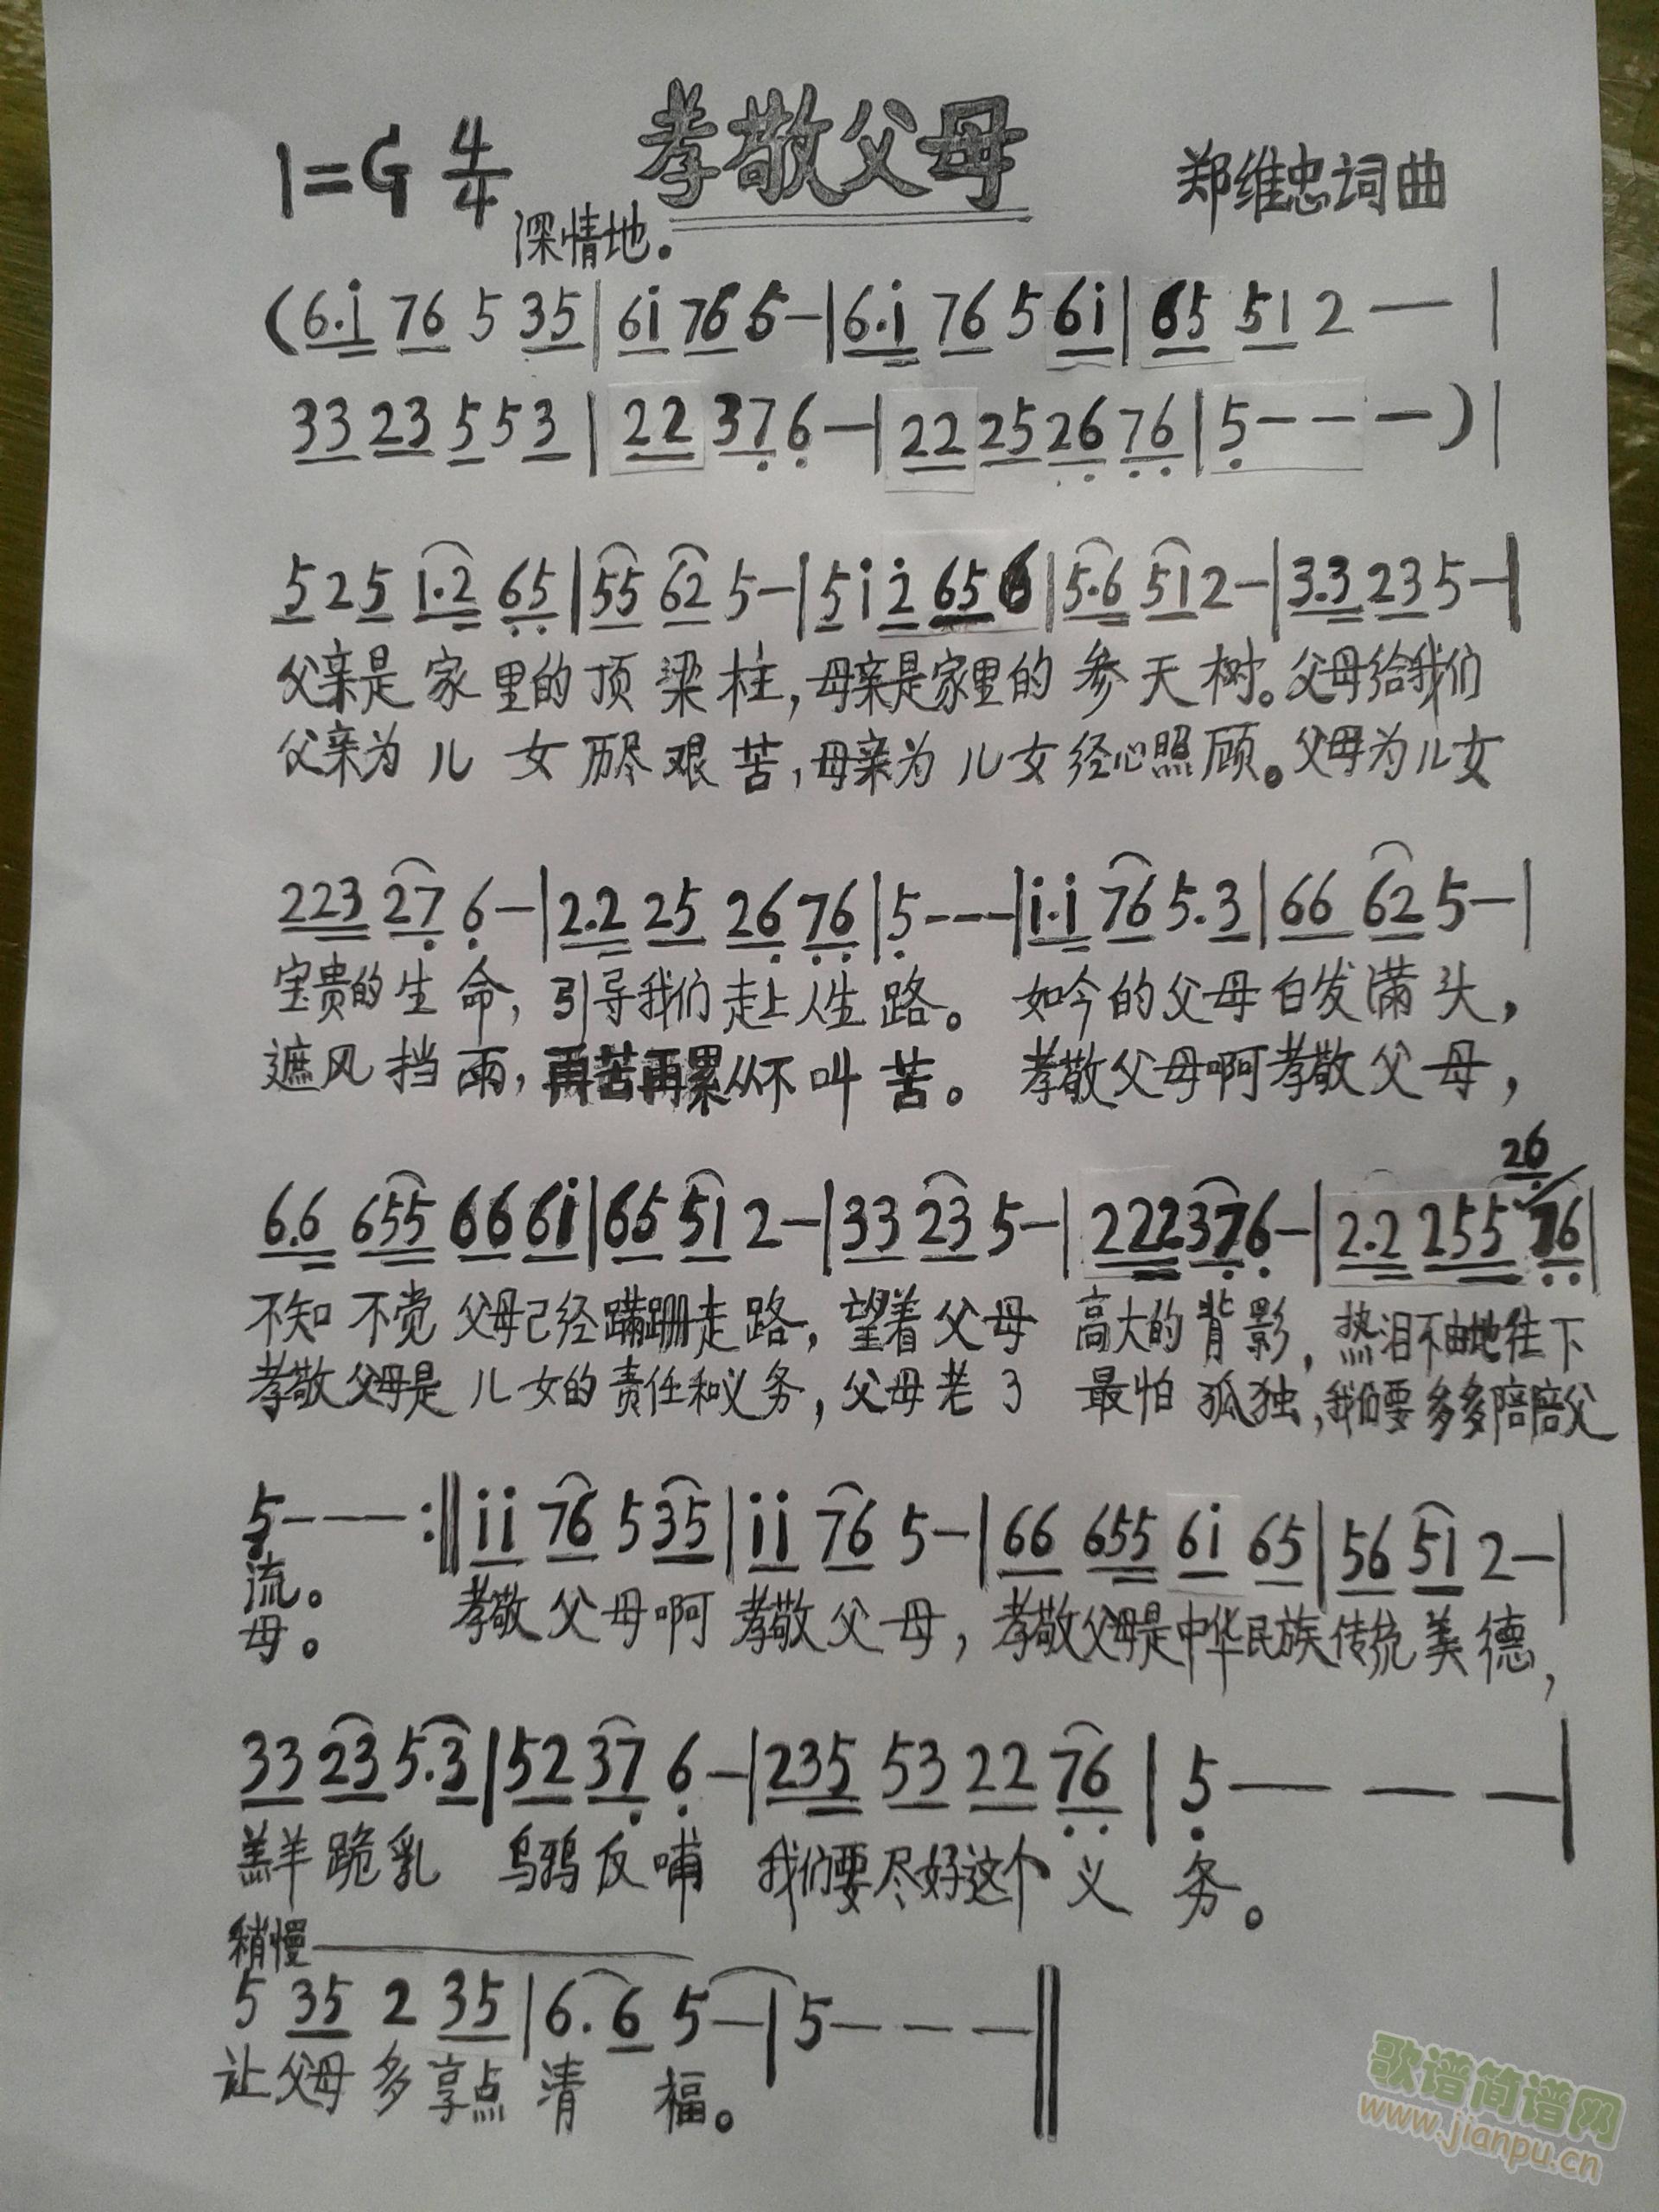 孝敬父母
1=G 4/4
郑维忠词曲
深情地。
(6.i 76 5 35|6i 76 5—|6.i 76 5 6i|65 51 2 — |
33 23 5 5 3 | 22 37 6 —|22 25 26 76|5 - - - )|
5 2 5 1.2 65|55 62 5—|5 i 2 65 6|5.6 51 2—|3.3 23 5—|
父亲是家里的顶梁柱,母亲是家里的参天树。父母给我们
父亲为儿女历尽艰苦,母亲为儿女经心照顾。父母为儿女
223 27 6—|2.2 25 26 76|5 - - -|i.i 76 5.3|66 62 5—|
宝贵的生命,引导我们走上人生路。如今的父母白发满头,
遮风挡雨,再苦再累从不叫苦。孝敬父母啊孝敬父母,
26
6.6 655 66 6i|65 51 2—|33 23 5—|222 37 6—|2.2 255 76|
不知不觉父母己经蹒跚走路,望着父母高大的背影,热泪不由地往下
孝敬父母是儿女的责任和义务,父母老了最怕孤独,我们要多多陪陪父
5 - - - :‖ii 76 5 35|ii 76 5—|66 655 6i 65|56 51 2—|
流。 孝敬父母啊孝敬父母,孝敬父母是中华民族传统美德,
母。
33 23 5.3|52 37 6—|235 53 22 76|5 — — —|
羔羊跪乳 乌鸦反哺 我们要尽好这个义务。
稍慢
5 35 2 35|6.6 5—|5 - - -‖
让父母多享点清福。
歌谱简谱网
www.jianpu.cn